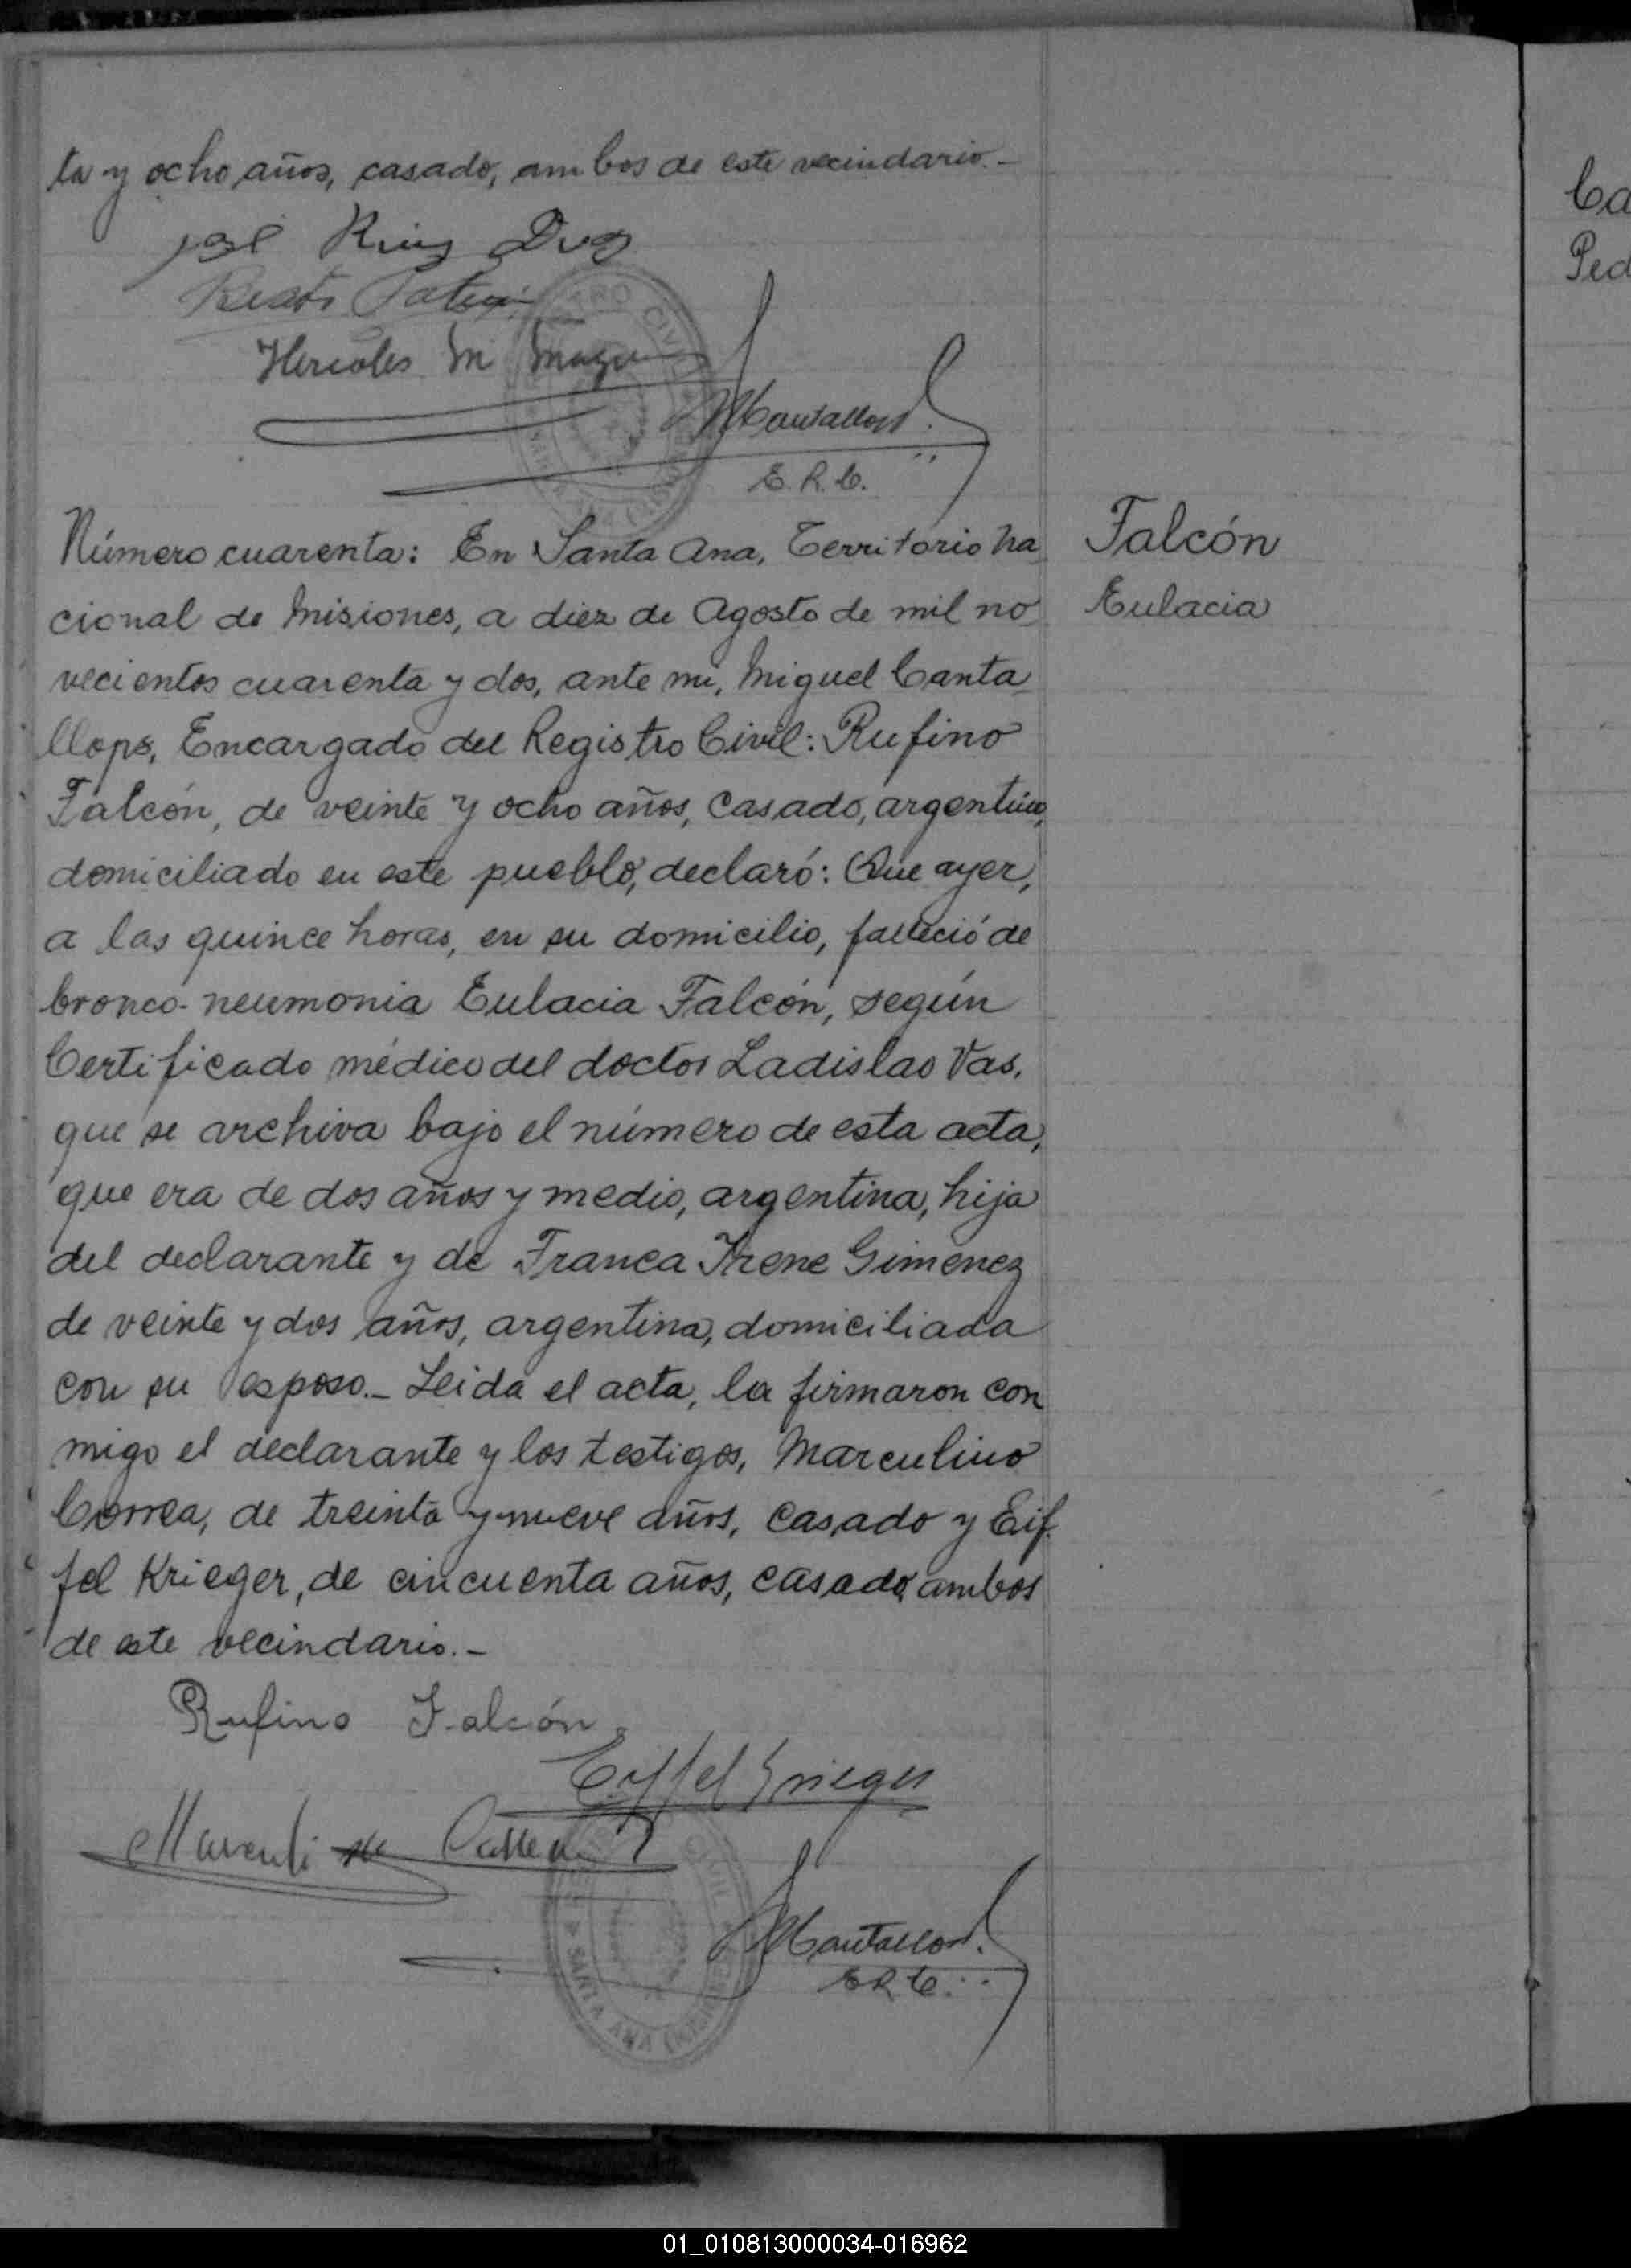 ta y ocho años, casado, ambos de este vecindario.-
José Ruiz Diaz
Hercoles M
MCantallops
E.R.C.
Número cuarenta: En Santa Ana, Territorio Na
cional de Misiones, a diez de Agosto de mil no
vecientos cuarenta y dos, ante mi, Miguel Canta
llops, Encargado del Registro Civil: Rufino
Falcón, de veinte y ocho años, casado, argentino,
domiciliado en este pueblo, declaró: Que ayer,
a las quince horas, en su domicilio, falleció de
bronco-neumonia Eulacia Falcón, según
Certificado médico del doctor Ladislao Vas,
que se archiva bajo el número de esta acta,
que era de dos años y medio, argentina, hija
del declarante y de Franca Irene Gimenez
de veinte y dos años, argentina, domiciliada
con su esposo.- Leida el acta, la firmaron con
migo el declarante y los testigos, Marculino
Correa, de treinta y nueve años, casado y Eif-
fel Krieger, de cincuenta años, casado, ambos
de este vecindario.-
Rufino Falcón
Eiffel Krieger
Marculino Correa
MCantallops
E.R.C.
SANTA ANA (MISIONES)
Falcón
Eulacia
Ca
Ped
01_010813000034-016962